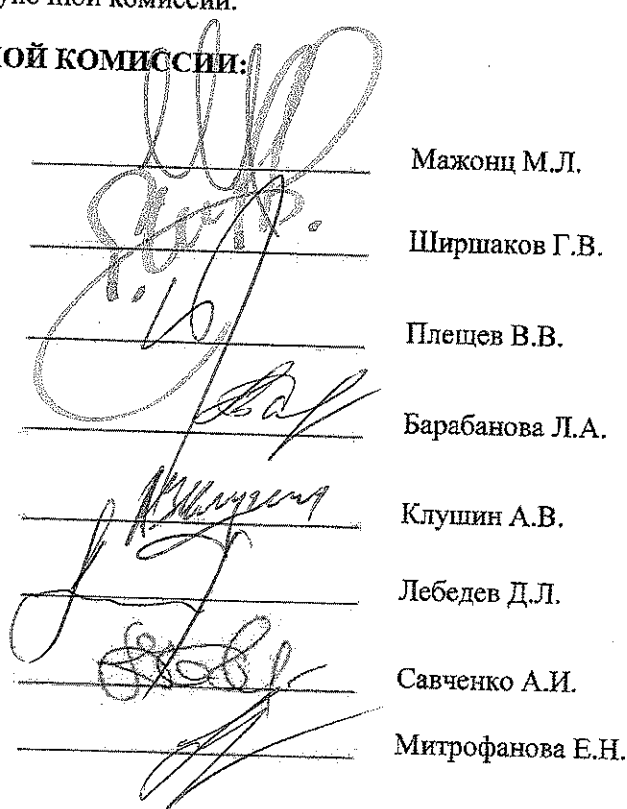 комиссии.
ОЙ КОМИССИИ:
Мажонц М.Л.
Ширшаков Г.В.
Плещев В.В.
Барабанова Л.А.
Клушин А.В.
Лебедев Д.Л.
Савченко А.И.
Митрофанова Е.Н.